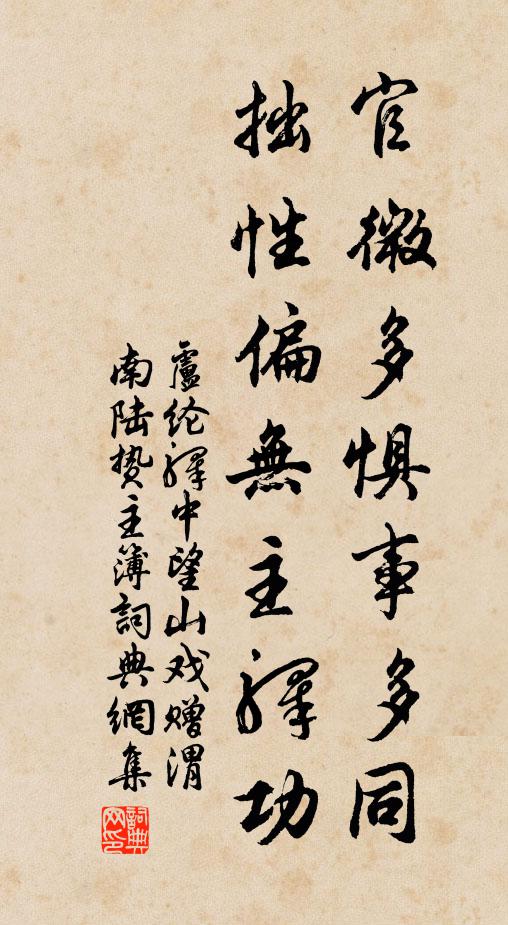 官微多惧事多同
拙性偏無主驛功
盧纶驛中望山戏赠渭
南陆贽主簿詞典網集
詞典网印